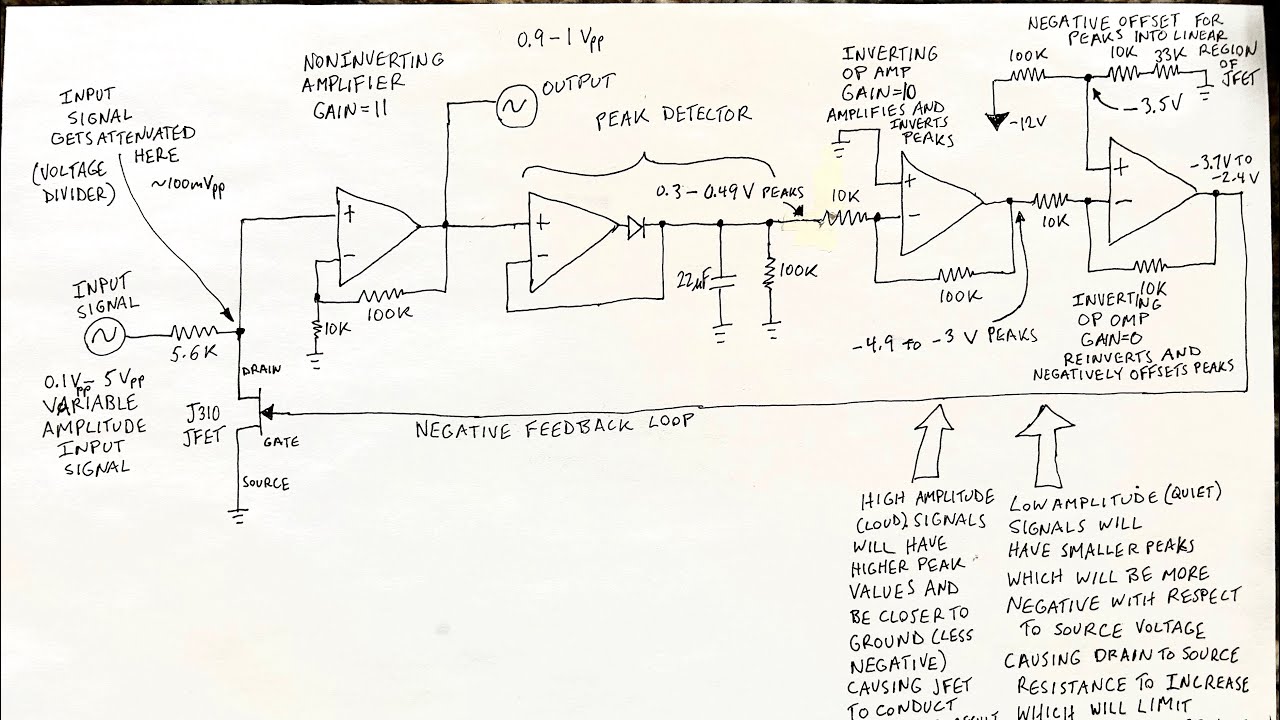 0.9-1 Vpp
OUTPUT
NONINVERTING
AMPLIFIER
GAIN=11
INPUT
SIGNAL
GETS ATTENUATED
HERE
(VOLTAGE
DIVIDER)
~100mVpp
INPUT
SIGNAL
5.6K
0.1Vpp-5Vpp
VARIABLE
AMPLITUDE
INPUT
SIGNAL
DRAIN
J310
JFET
GATE
SOURCE
+
-
10K
100K
PEAK DETECTOR
+
-
0.3-0.49V PEAKS
22µF
100K
INVERTING
OP AMP
GAIN=10
AMPLIFIES AND
INVERTS
PEAKS
10K
+
-
100K
-4.9 to -3 V PEAKS
NEGATIVE OFFSET FOR
PEAKS INTO LINEAR
REGION
OF
JFET
100K
10K
33K
-12V
-3.5V
10K
+
-
-3.7V TO
-2.4V
10K
INVERTING
OP OMP
GAIN=0
REINVERTS AND
NEGATIVELY OFFSETS PEAKS
NEGATIVE FEEDBACK LOOP
HIGH AMPLITUDE
(LOUD) SIGNALS
WILL HAVE
HIGHER PEAK
VALUES AND
BE CLOSER TO
GROUND (LESS
NEGATIVE)
CAUSING JFET
TO CONDUCT
LOW AMPLITUDE (QUIET)
SIGNALS WILL
HAVE SMALLER PEAKS
WHICH WILL BE MORE
NEGATIVE WITH RESPECT
TO SOURCE VOLTAGE
CAUSING DRAIN TO SOURCE
RESISTANCE TO INCREASE
WHICH WILL LIMIT